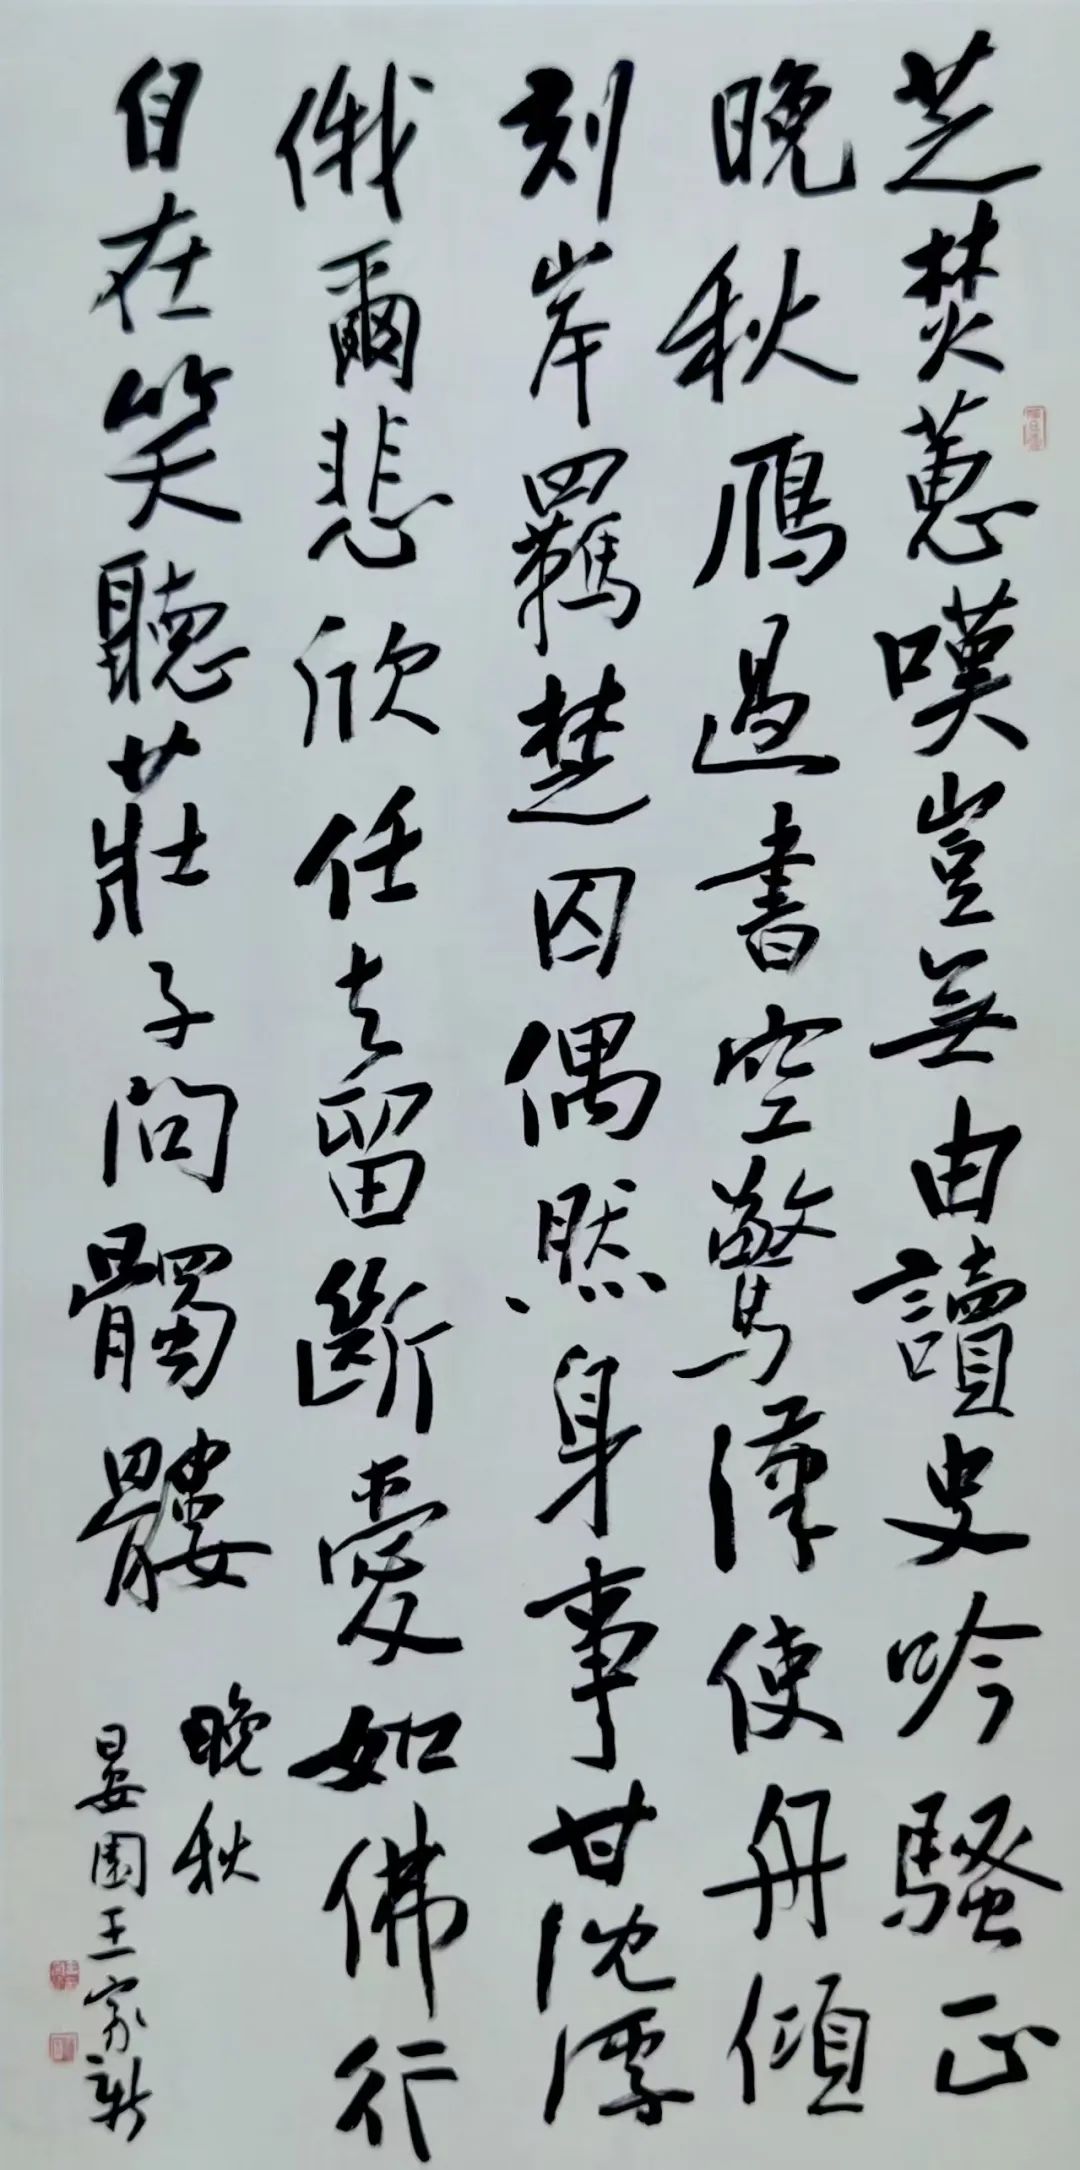 芝焚蕙嘆豈無由讀史吟騷正
晚秋鴈過書空驚漢使舟傾
刻岸羈楚囚偶然身事甘沈浮
俄爾悲欣任去留斷愛如佛行
自在笑聽莊子問髑髏
晚秋
晏園王家新